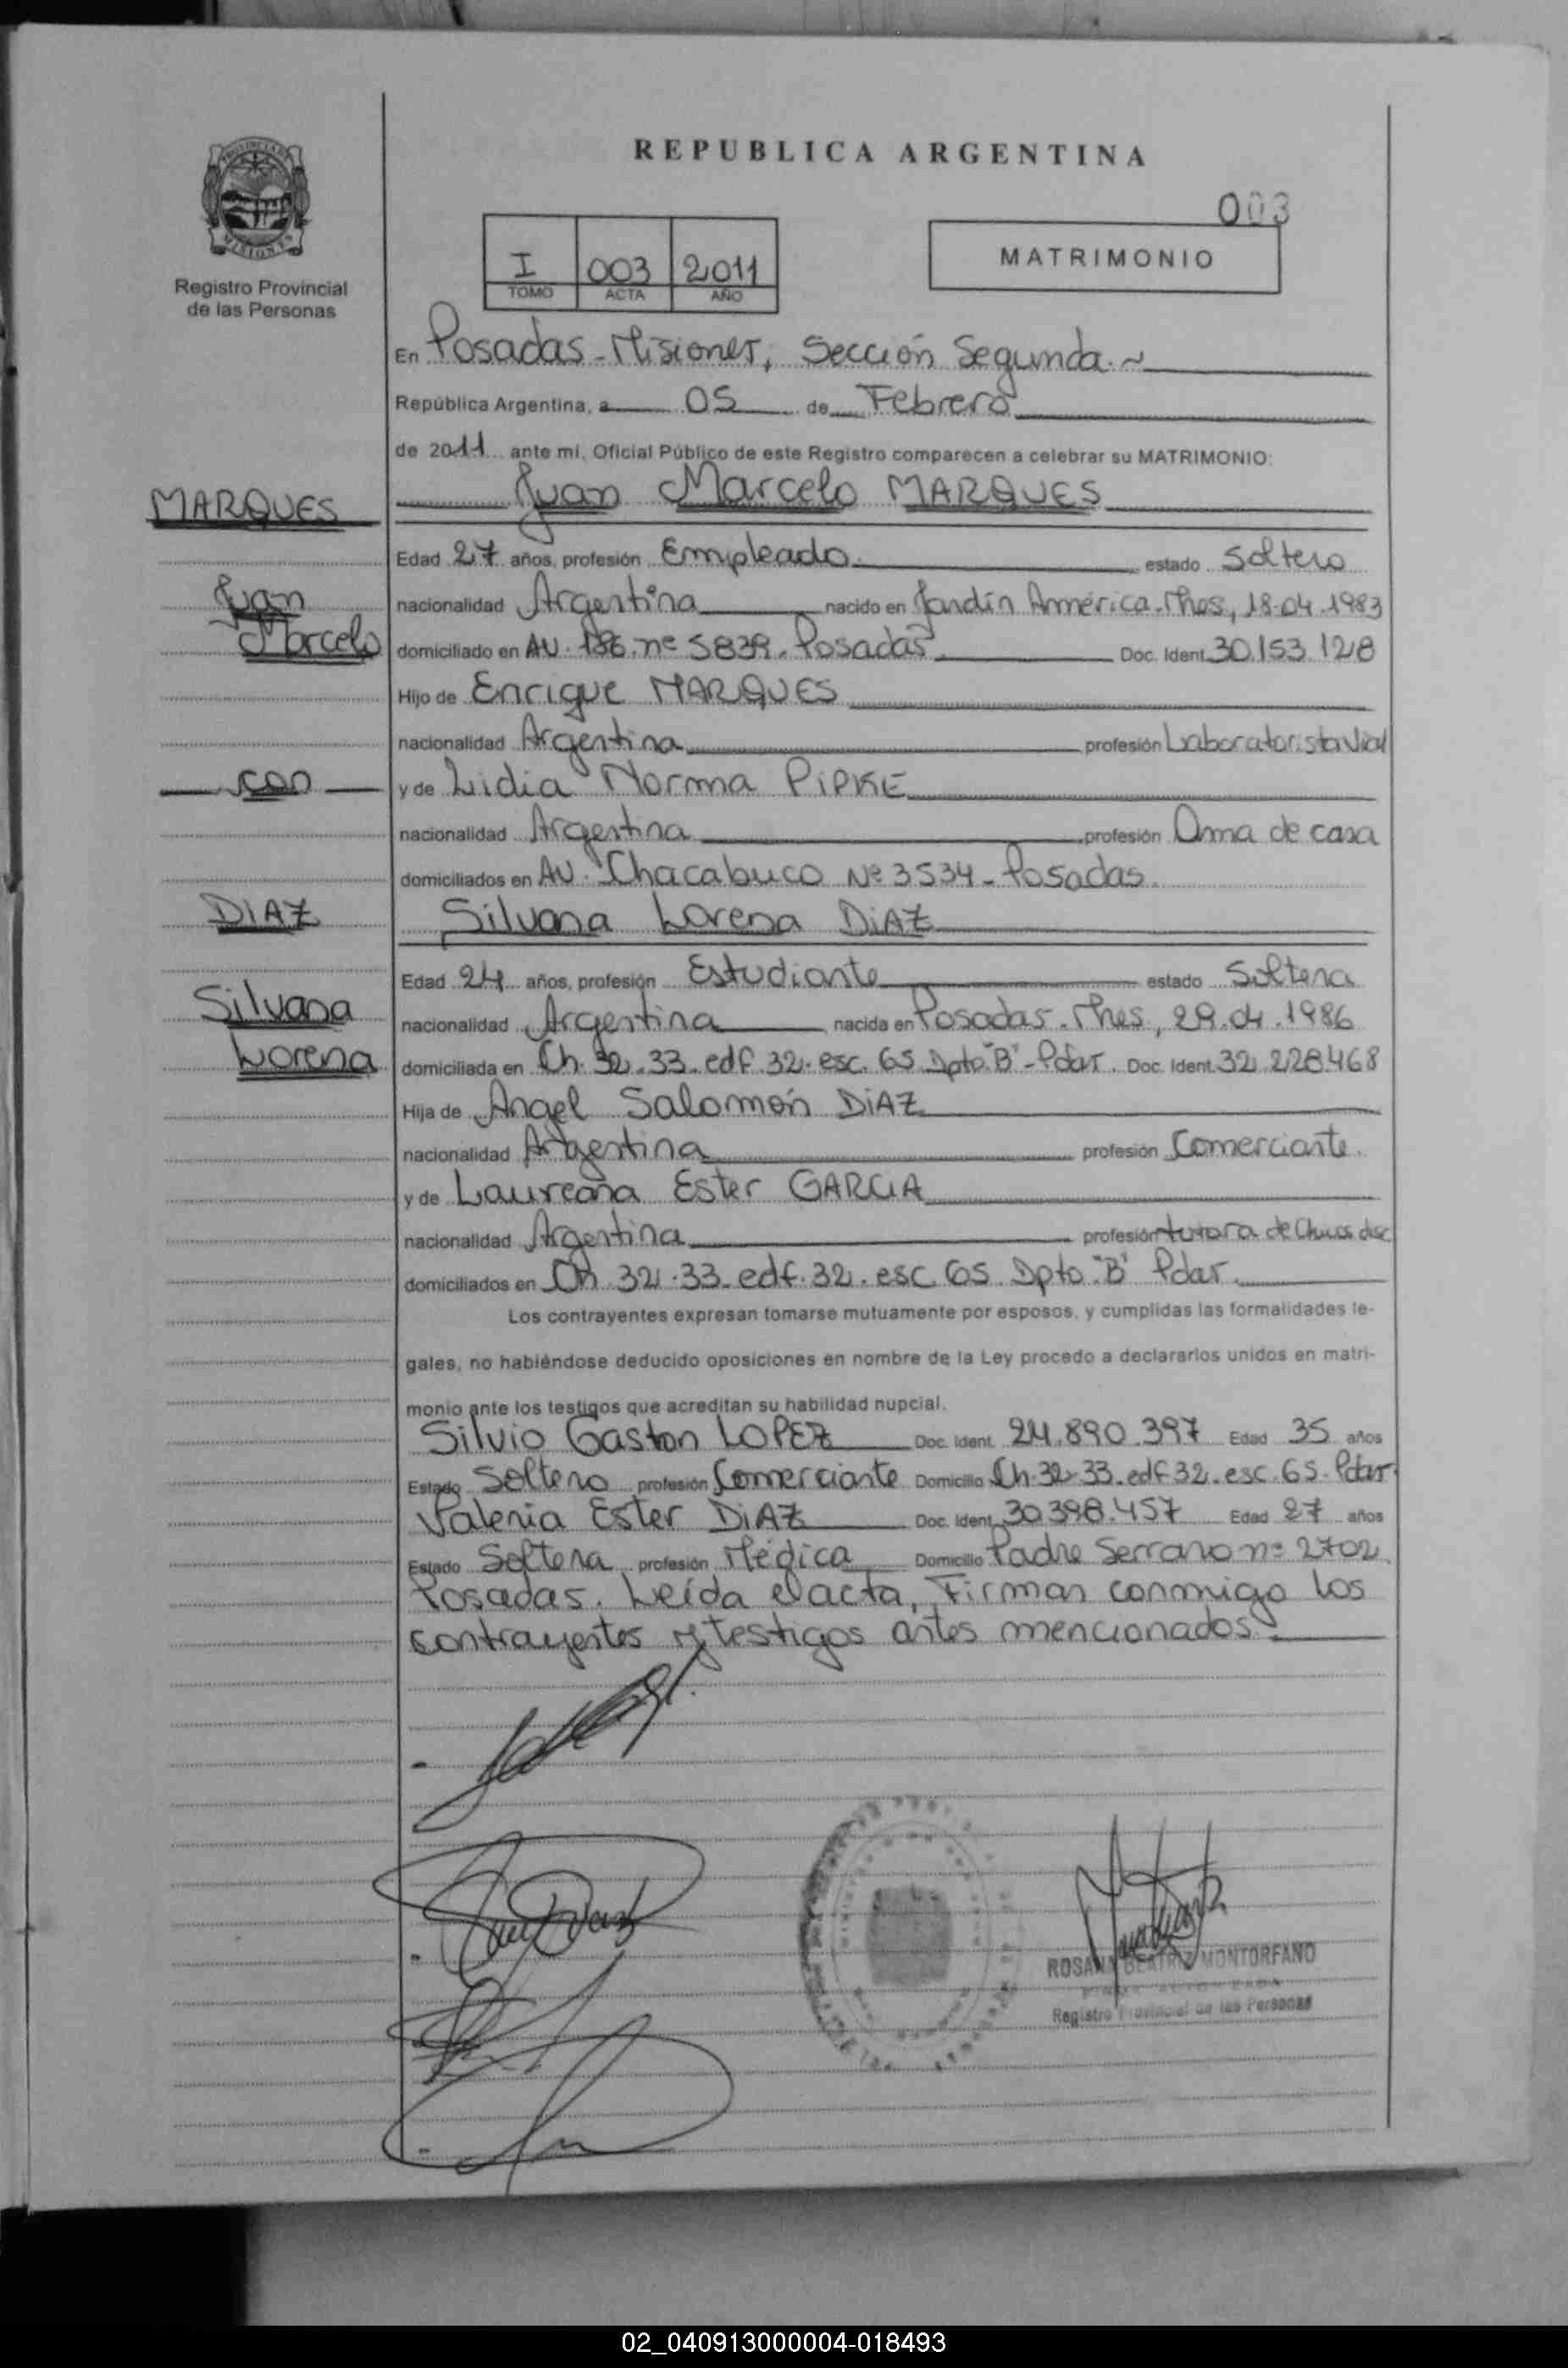 REPUBLICA ARGENTINA
PROVINCIA DE MISIONES
Registro Provincial
de las Personas
003
I 003 2011
TOMO ACTA AÑO
MATRIMONIO
En Posadas-Misiones, Sección Segunda.~
República Argentina, a 05 de Febrero
de 2011 ante mí, Oficial Público de este Registro comparecen a celebrar su MATRIMONIO:
MARQUES
Juan Marcelo MARQUES
Edad 27 años, profesión Empleado. estado Soltero
Juan
nacionalidad Argentina nacido en Jardín América-Mnes, 18-04-1983
Marcelo
domiciliado en AV. 186 nº 5839. Posadas Doc. Ident. 30.153.128
Hijo de Enrique MARQUES
nacionalidad Argentina profesión Laboratorista Vial
con
y de Lidia Norma PIPKE
nacionalidad Argentina profesión Ama de casa
domiciliados en AV. Chacabuco Nº 3534 - Posadas.
DIAZ
Silvana Lorena DIAZ
Edad 24 años, profesión Estudiante estado Soltera
Silvana
nacionalidad Argentina nacida en Posadas. Mnes, 29.04.1986
Lorena
domiciliada en Ch. 32-33. edf 32. esc. 65 Dpto "B" - Pdas. Doc. Ident. 32.228.468
Hija de Angel Salomón DIAZ
nacionalidad Argentina profesión Comerciante.
y de Laureana Ester GARCIA
nacionalidad Argentina profesión tutora de disc
domiciliados en Ch 32.33. edf. 32. esc 65 Dpto "B" Pdas.
Los contrayentes expresan tomarse mutuamente por esposos, y cumplidas las formalidades le-
gales, no habiéndose deducido oposiciones en nombre de la Ley procedo a declararlos unidos en matri-
monio ante los testigos que acreditan su habilidad nupcial.
Silvio Gaston LOPEZ Doc. Ident. 24.890.397 Edad 35 años
Estado Soltero profesión Comerciante Domicilio Ch. 32-33. edf 32. esc. 65. Pdas.
Valeria Ester DIAZ Doc. Ident. 30.398.457 Edad 27 años
Estado Soltera profesión Médica Domicilio Padre Serrano nº 2702
Posadas. Leída el acta, Firman conmigo los
contrayentes y testigos antes mencionados.
ROSANA BEATRIZ MONTORFANO
Registro Provincial de las Personas
02_040913000004-018493